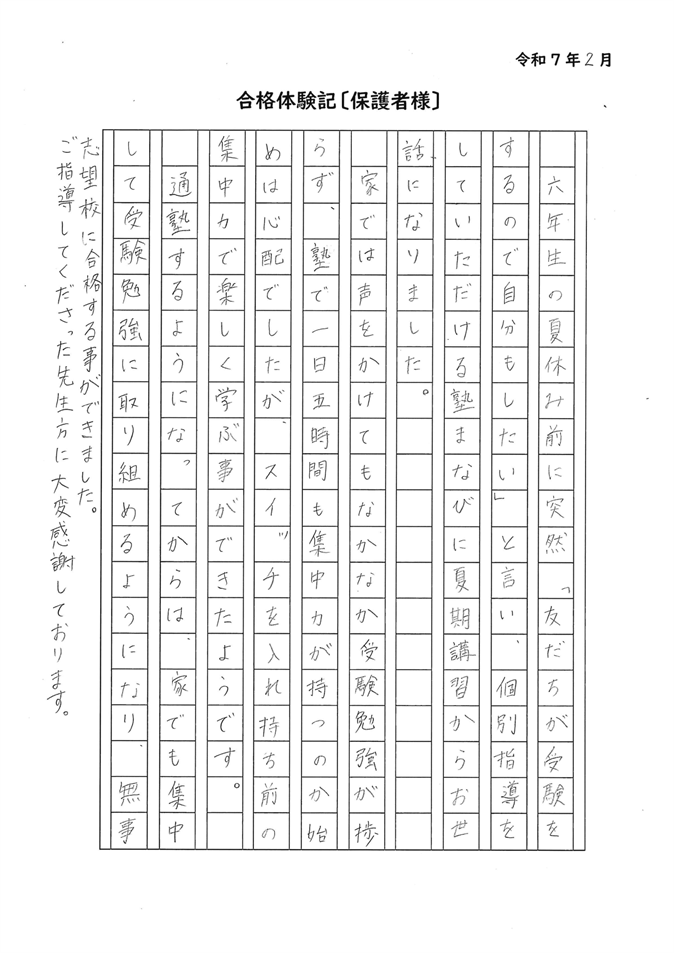 令和7年2月
合格体験記〔保護者様〕
六年生の夏休み前に突然「友だちが受験を
するので自分もしたい」と言い、個別指導を
していただける塾まなびに夏期講習からお世
話になりました。
家では声をかけてもなかなか受験勉強が捗
らず、塾で一日五時間も集中力が持つのか始
めは心配でしたが、スイッチを入れ持ち前の
集中力で楽しく学ぶ事ができたようです。
通塾するようになってからは、家でも集中
して受験勉強に取り組めるようになり、無事
志望校に合格する事ができました。
ご指導してくださった先生方に大変感謝しております。